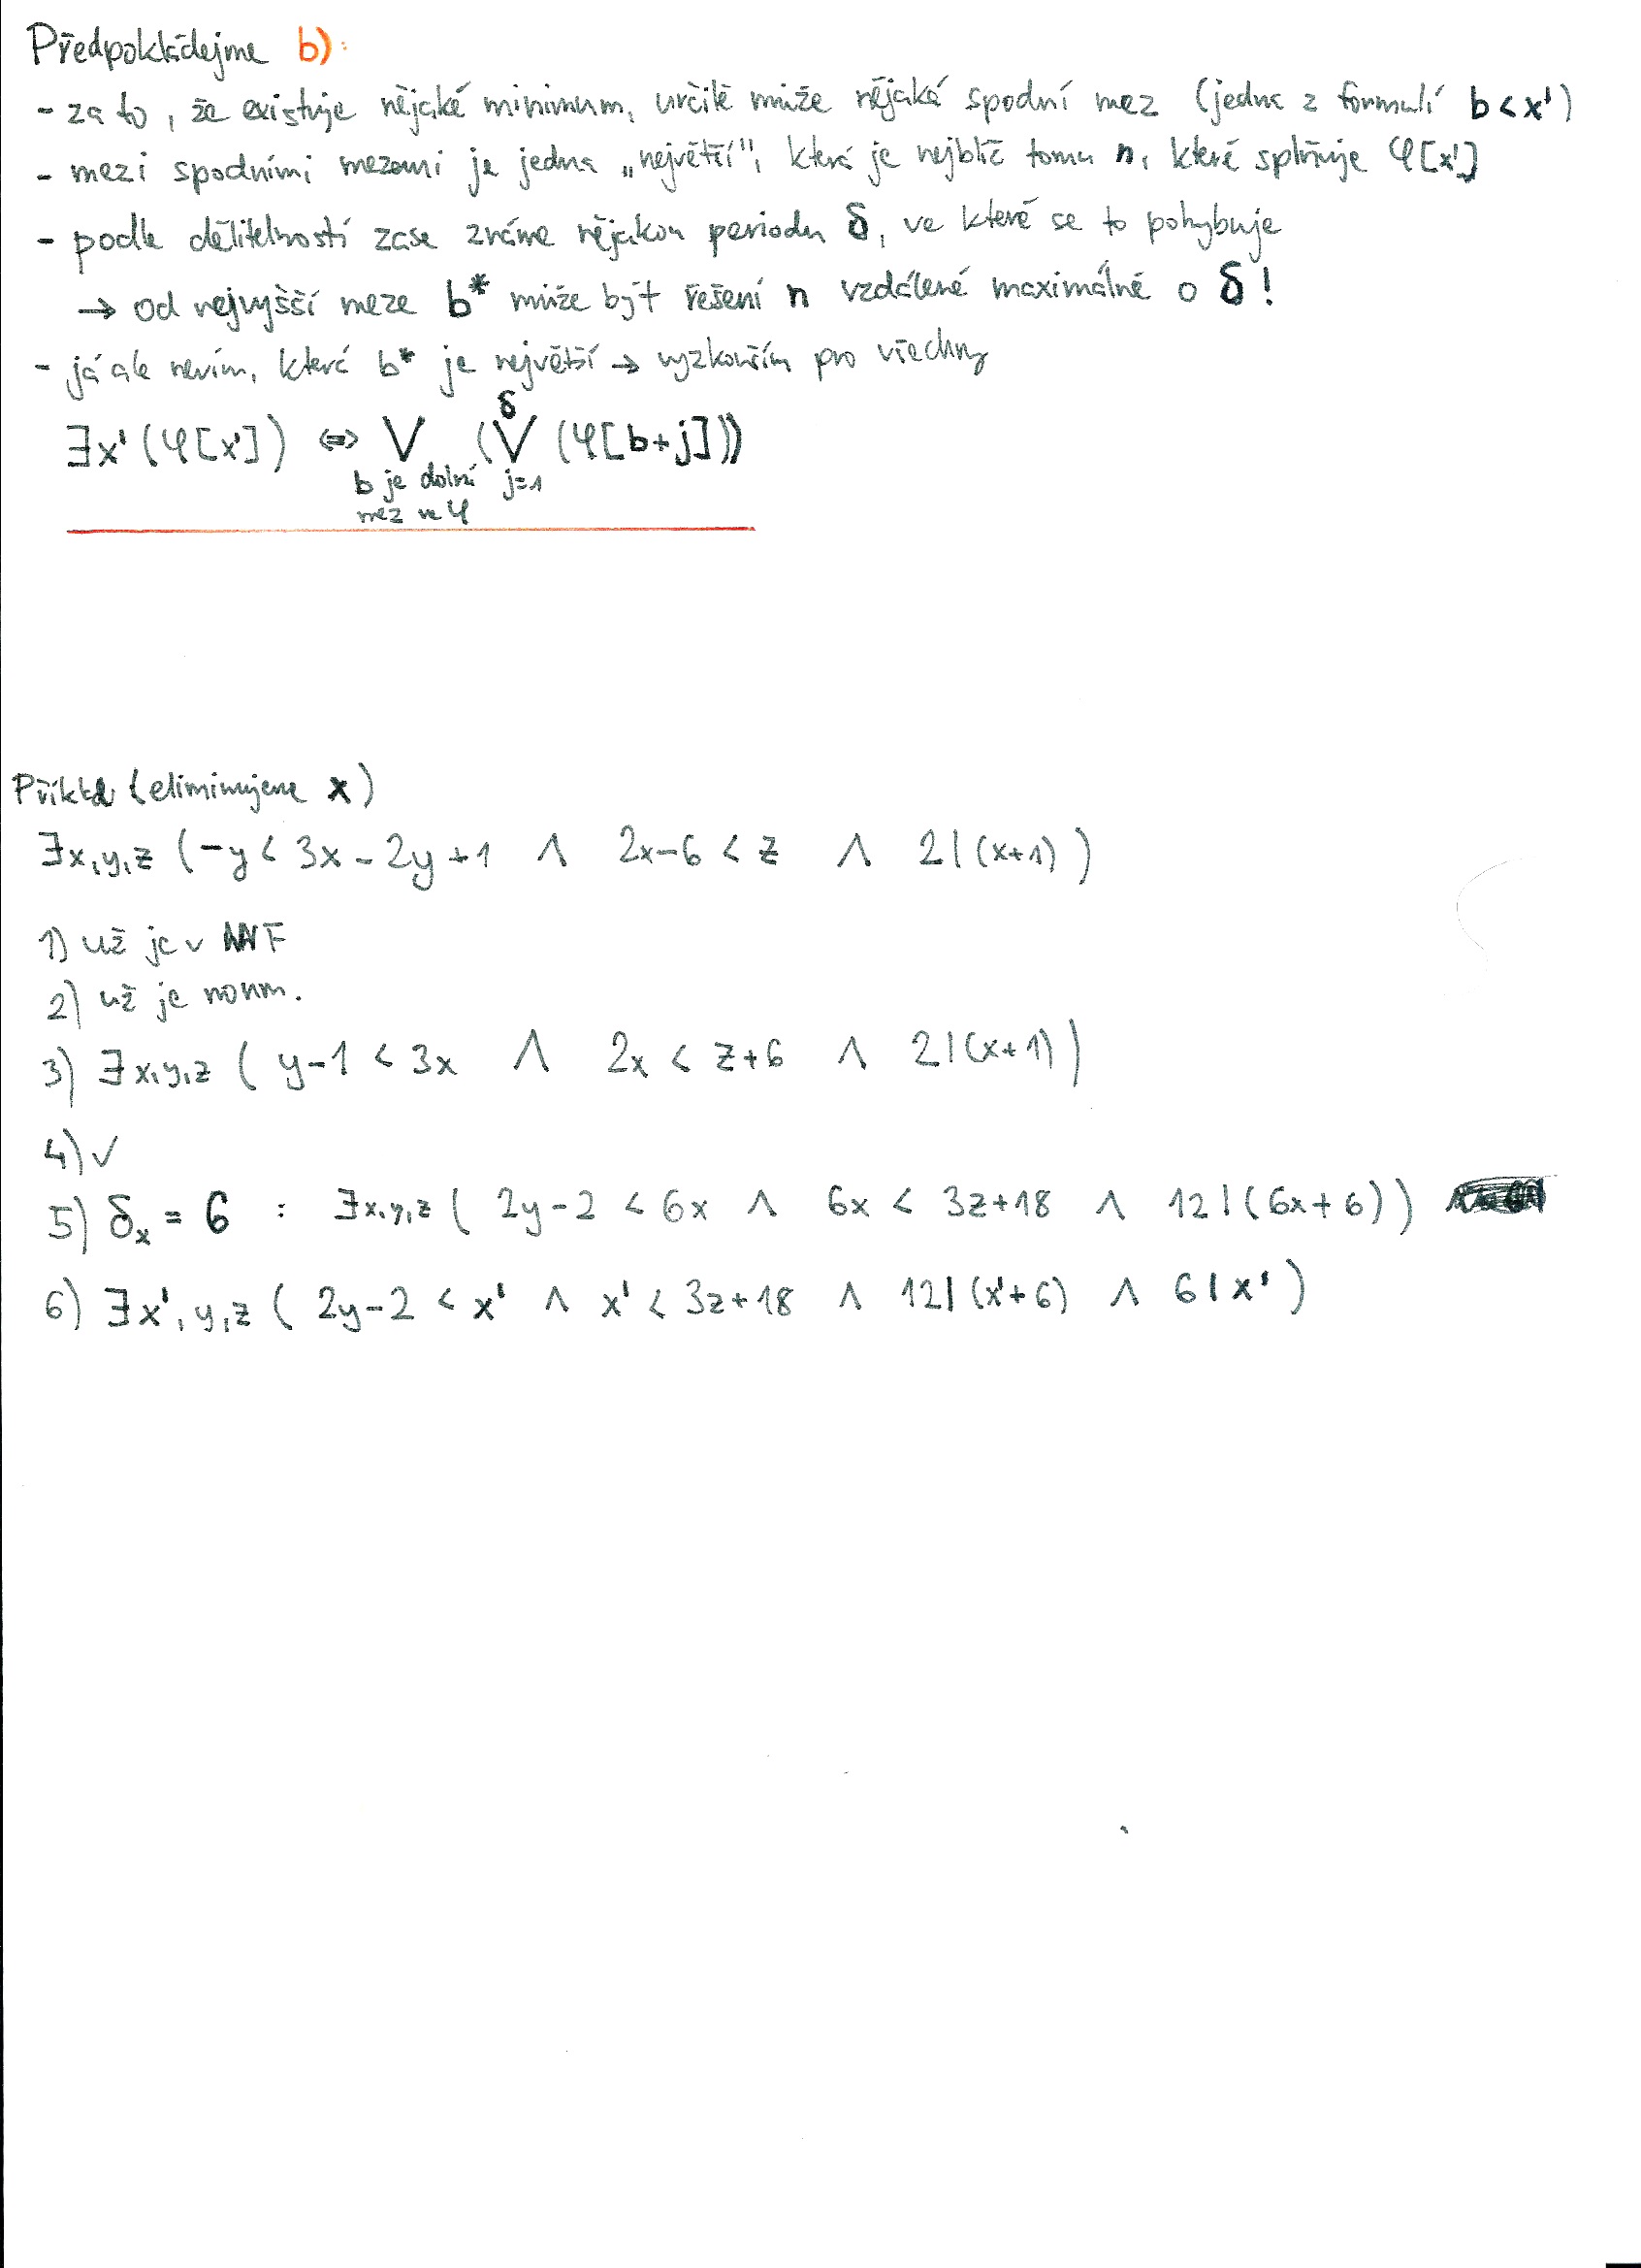 Předpokládejme b):
- za to, že existuje nějaké minimum, určitě může nějaká spodní mez (jedna z formulí b < x')
- mezi spodními mezemi je jedna „největší", která je nejblíž tomu n, které splňuje φ[x']
- podle dělitelností zase známe nějakou periodu δ, ve které se to pohybuje
→ od nejvyšší meze b* může být řešení n vzdálené maximálně o δ!
- já ale nevím, která b* je největší → vyzkouším pro všechny
∃x'(φ[x']) ⇔ ⋁ b je dolní mez ve φ (⋁ j=1 δ (φ[b+j]))
Příklad (eliminujeme x)
∃x,y,z (-y < 3x - 2y + 1 ∧ 2x-6 < z ∧ 2|(x+1))
1) už je v NNF
2) už je norm.
3) ∃x,y,z ( y-1 < 3x ∧ 2x < z+6 ∧ 2|(x+1))
4) ✓
5) δx = 6 : ∃x,y,z ( 2y-2 < 6x ∧ 6x < 3z+18 ∧ 12|(6x+6))
6) ∃x',y,z ( 2y-2 < x' ∧ x' < 3z+18 ∧ 12|(x'+6) ∧ 6|x' )